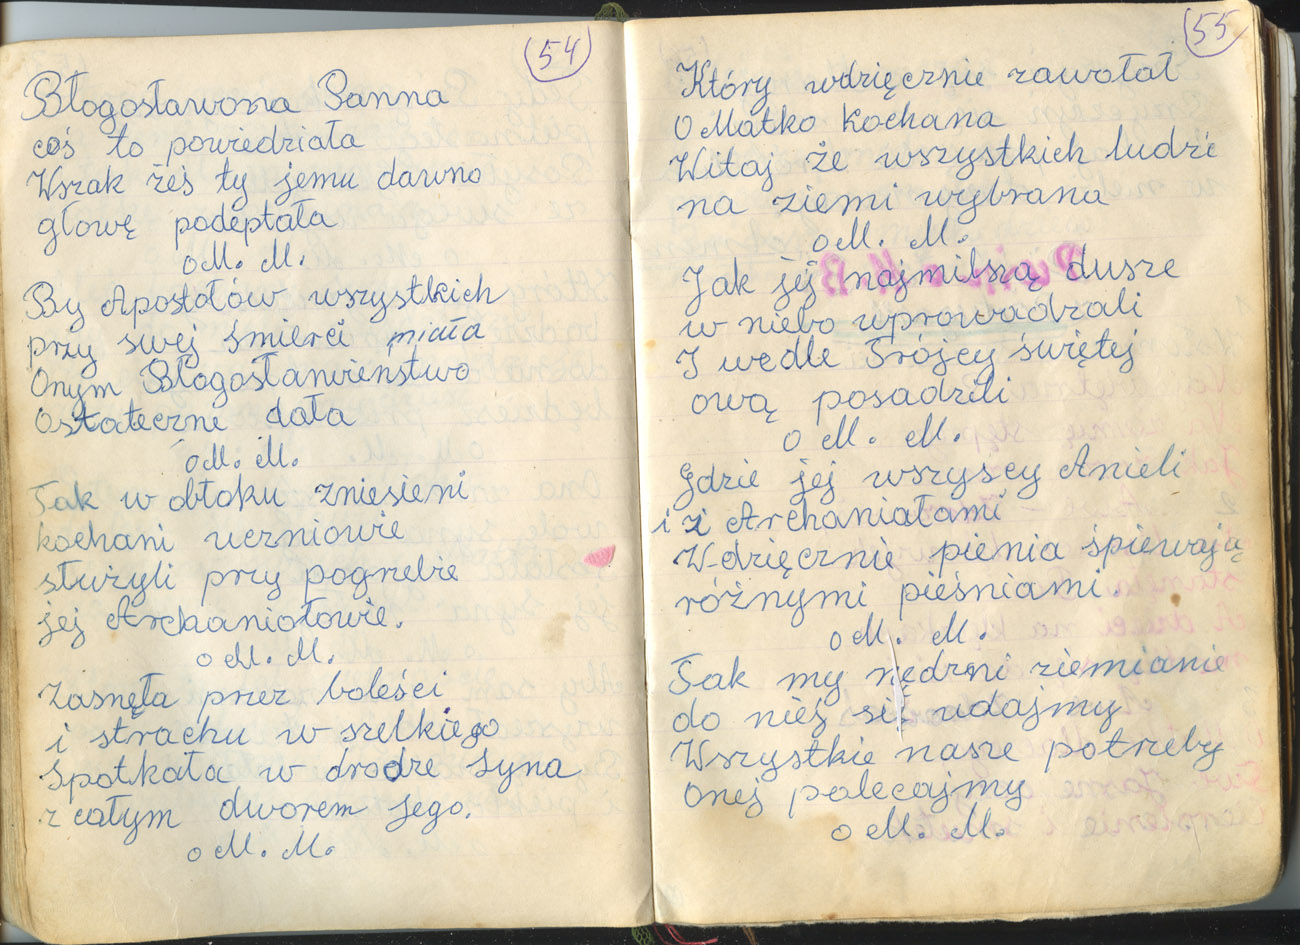 54
Błogosławiona Panna
coś to powiedziała
Wszak żeś ty jemu dawno
głowę podeptała
o M. M.
By Apostołów wszystkich
przy swej śmierci miała
Onym Błogosławieństwo
Ostateczne dała
o M. M.
Tak w obłoku zniesieni
kochani uczniowie
służyli przy pogrzebie
jej Archaniołowie.
o M. M.
Zasnęła prez boleści
i strachu w-szelkiego
Spotkała w drodze Syna
z całym dworem Jego.
o M. M.
55
Który wdzięcznie zawołał
O Matko kochana
Witaj że wszystkich ludzi
na ziemi wybrana
o M. M.
Jak jej najmilszą dusze
w niebo wprowadzali
I wedle Trójcy świętej
ową posadzili
o M. M.
Gdzie jej wszyscy Anieli
i z Archaniałami
W-dzięcznie pienia śpiewają
różnymi pieśniami.
o M. M.
Tak my nędzni ziemianie
do niej się udajmy
Wszystkie nasze potrzeby
Onej polecajmy
o M. M.